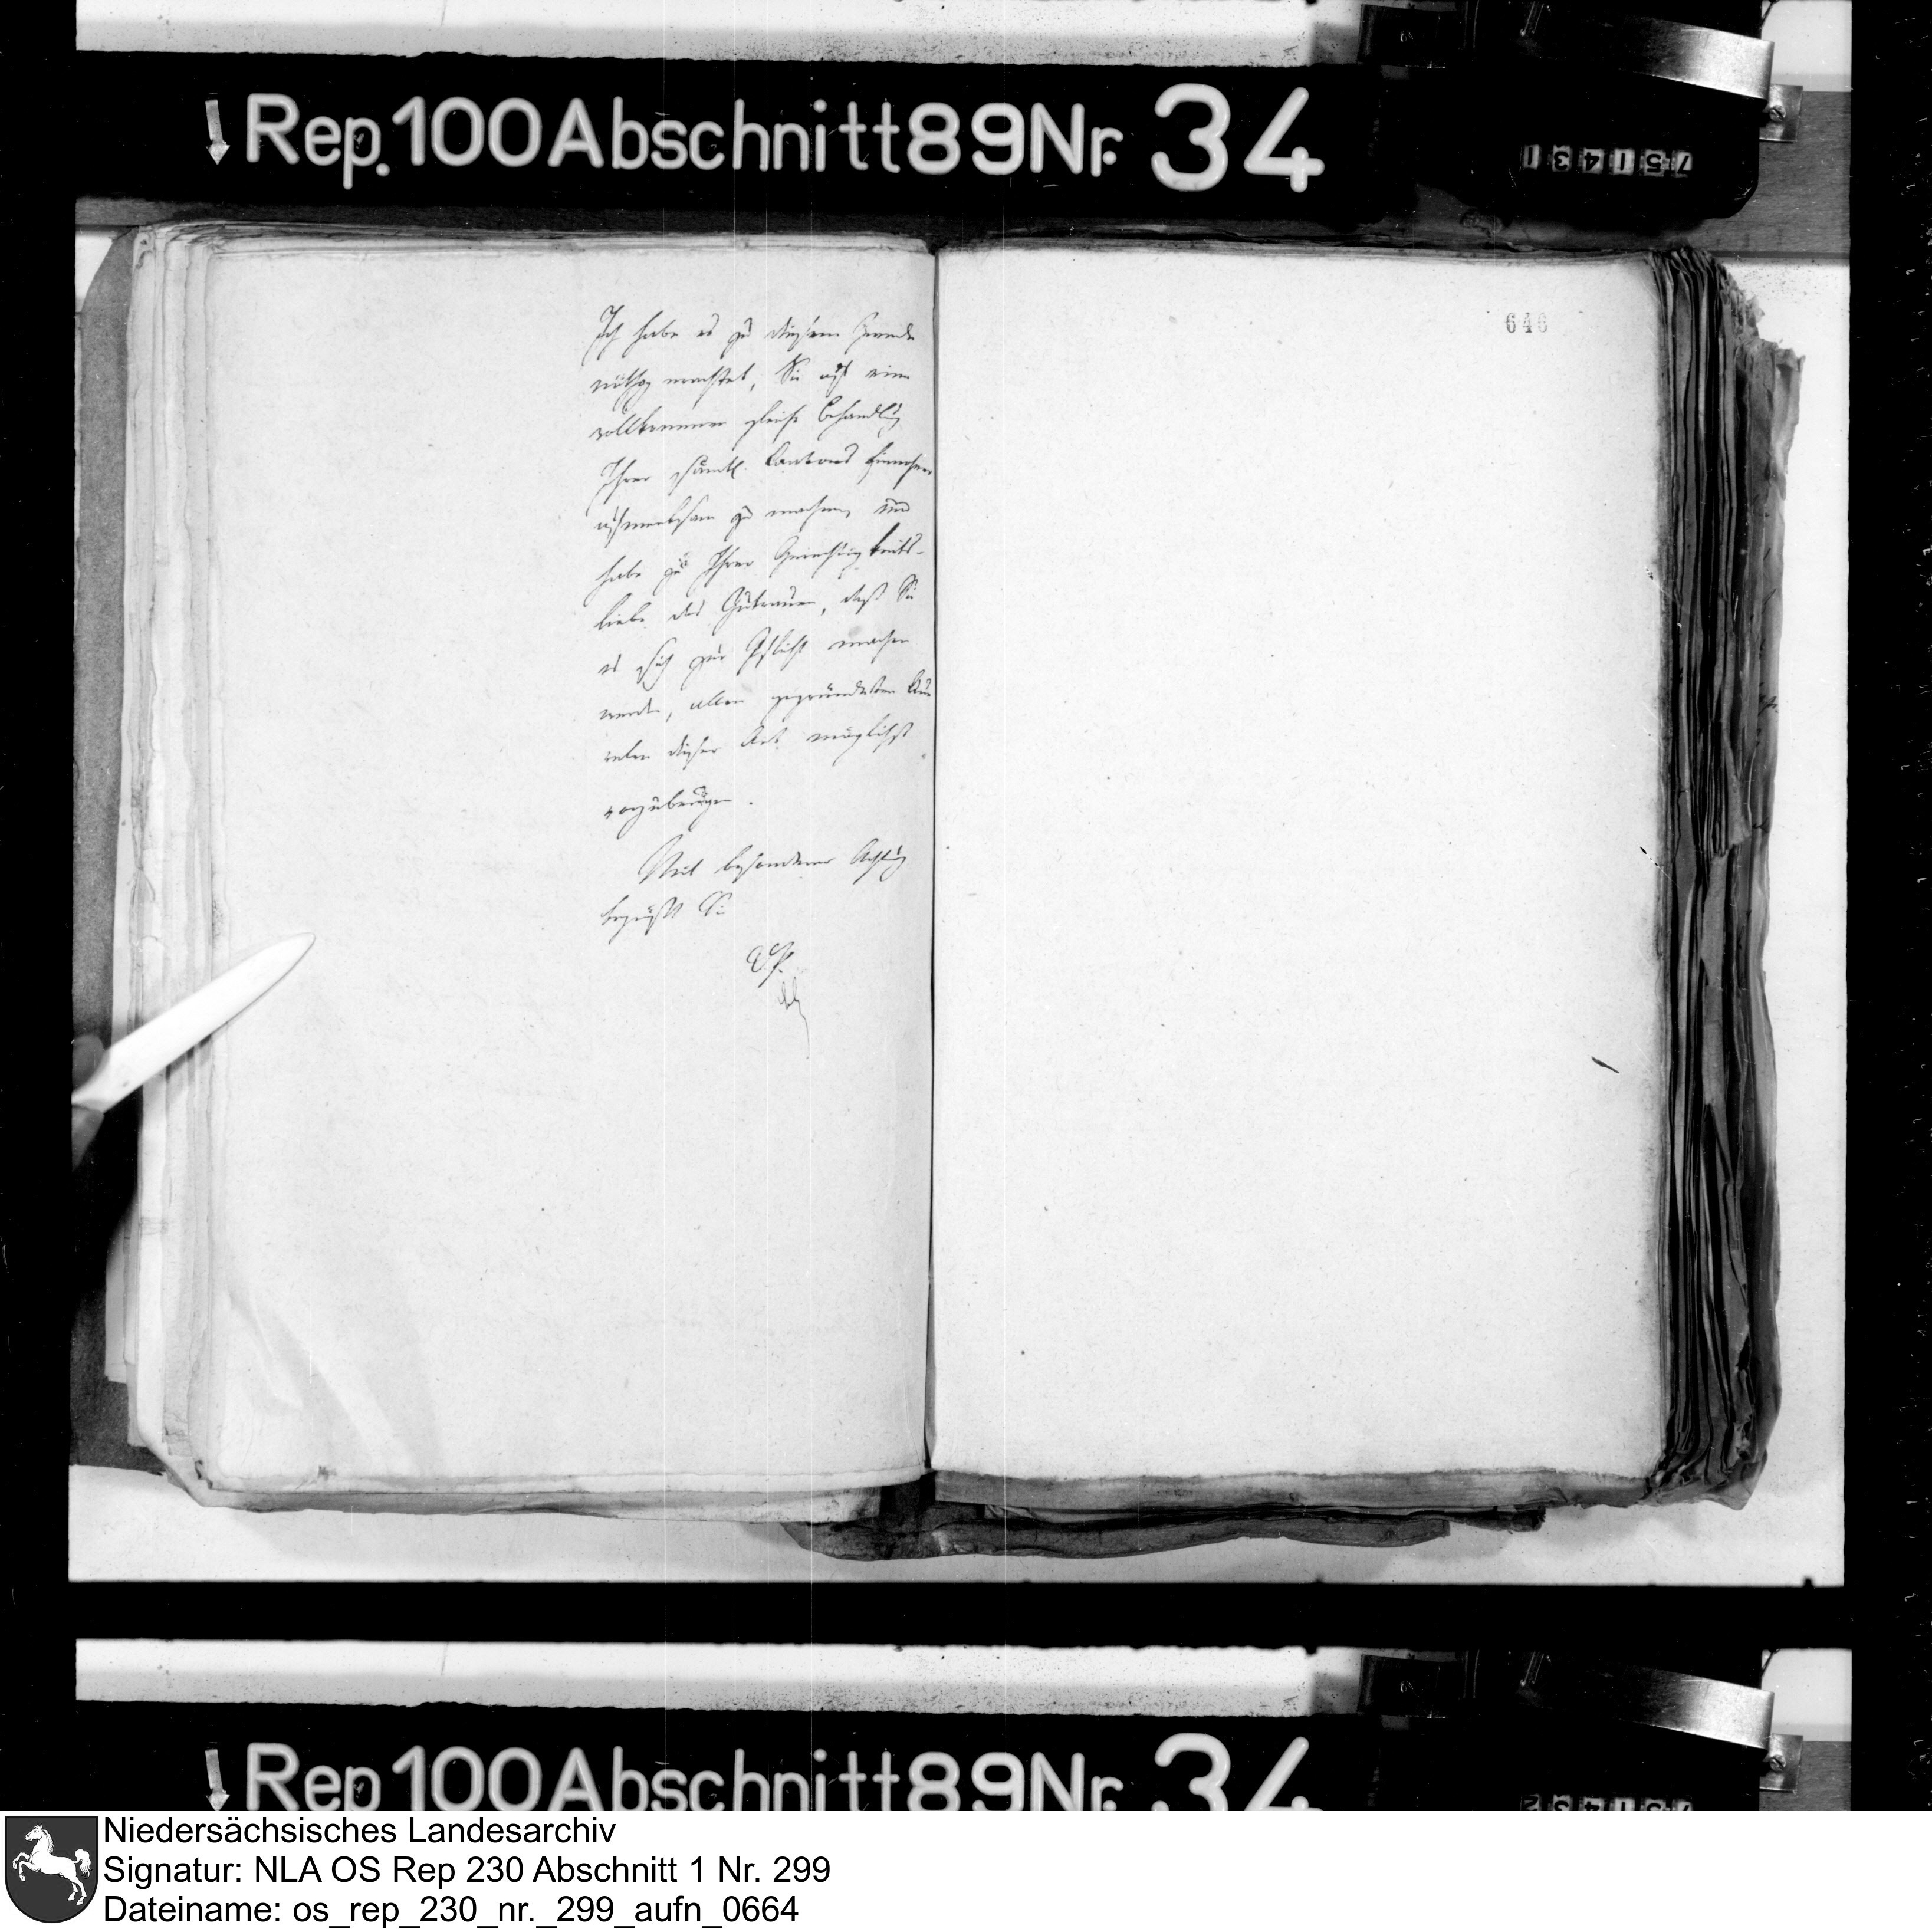 Rep. 100 Abschnitt 89 Nr. 34
751431
Ich habe es zu diesem Zwecke
nöthig erachtet, Sie auf eine
vollkommen gleiche Behandlg
Ihrer sämtl. Cantons Einwohner
aufmerksam zu machen, und
habe zu Ihrer Gerechtigkeits-
liebe das Zutrauen, daß Sie
es sich zur Pflicht machen
werden, allen gegründeten
dieser Art möglichst
vorzubeugen.
Mit besonderer Achtg
begrüßt Sie
640
Rep. 100 Abschnitt 89 Nr. 34
Niedersächsisches Landesarchiv
Signatur: NLA OS Rep 230 Abschnitt 1 Nr. 299
Dateiname: os_rep_230_nr._299_aufn_0664